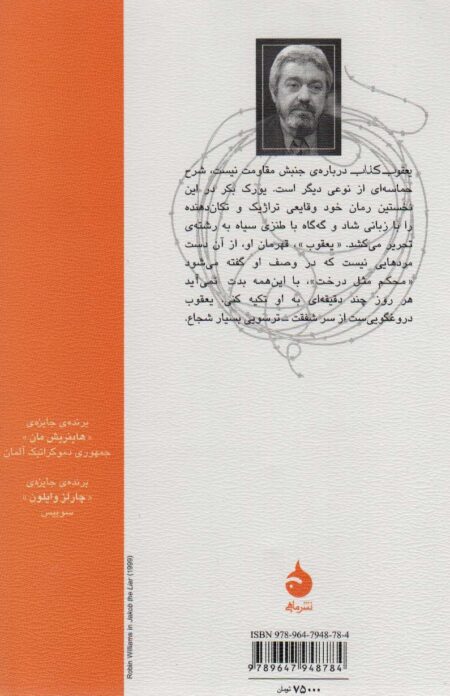 یعقوب کذاب درباره‌ی جنبش مقاومت نیست، شرح
حماسه‌ای از نوعی دیگر است. یورک بکر در این
نخستین رمان خود وقایعی تراژیک و تکان‌دهنده
را با زبانی شاد و گه‌گاه با طنزی سیاه به رشته‌ی
تحریر می‌کشد. «یعقوب»، قهرمان او، از آن دست
مردهایی نیست که در وصف او گفته می‌شود
«محکم مثل درخت»، با این‌همه بدت نمی‌آید
هر روز چند دقیقه‌ای به او تکیه کنی. یعقوب
دروغگویی‌ست از سر شفقت ــ ترسویی بسیار شجاع.
برنده‌ی جایزه‌ی
«هاینریش مان»
جمهوری دموکراتیک آلمان
برنده‌ی جایزه‌ی
«چارلز وایلون»
سوییس
Robin Williams in Jakob the Liar (1999)
نشرماهی
ISBN 978-964-7948-78-4
9 789647 948784
۷۵۰۰۰ تومان